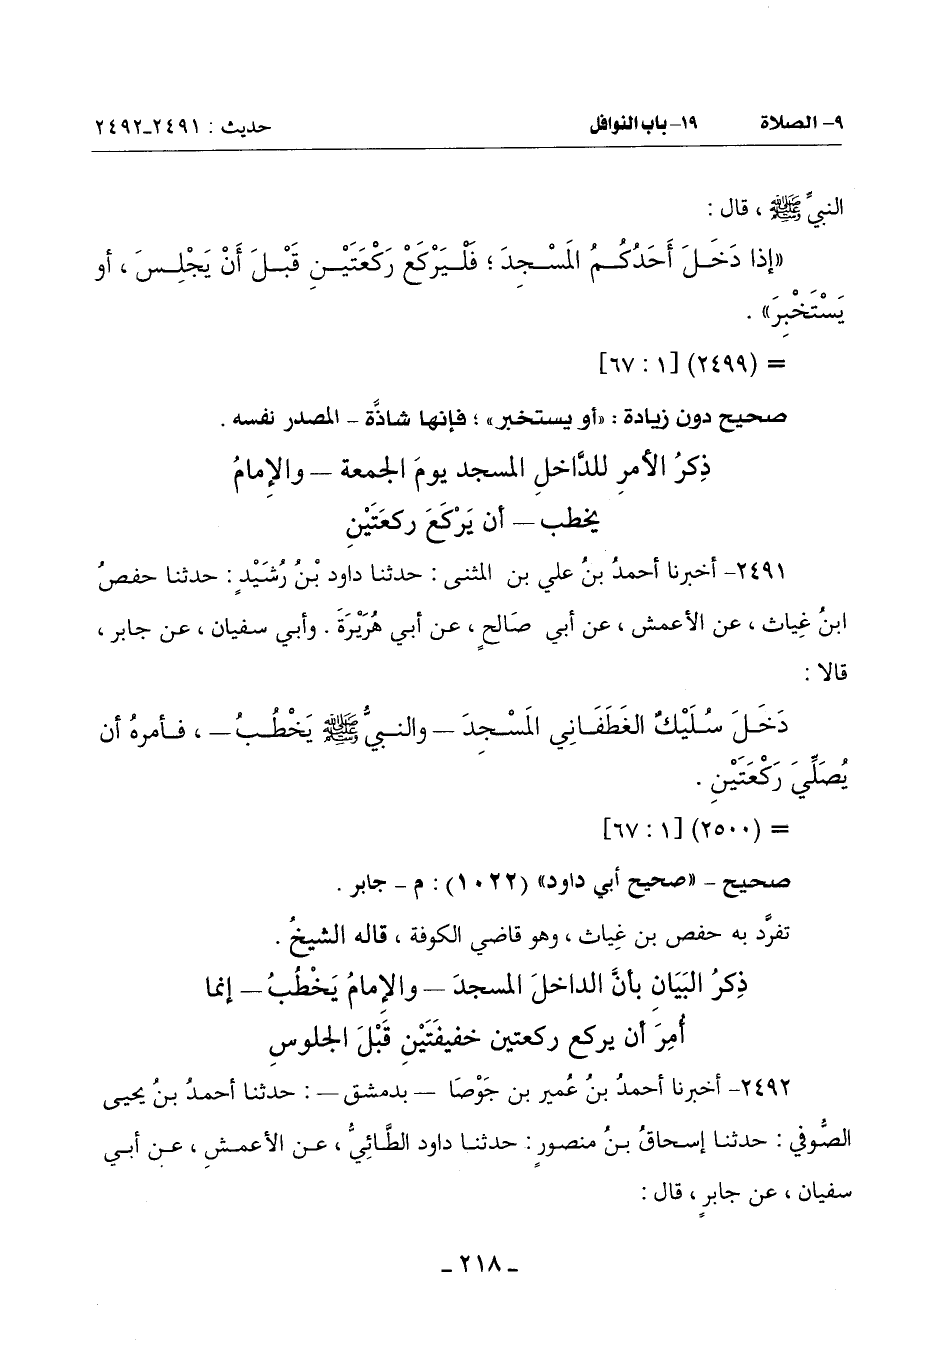 ٩- الصلاة ١٩- باب النوافل حديث : ٢٤٩١-٢٤٩٢
النبيِّ ﷺ ، قال :
«إذا دَخَلَ أَحَدُكُمُ المَسْجِدَ ؛ فَلْيَرْكَعْ رَكْعَتَيْنِ قَبْلَ أَنْ يَجْلِسَ ، أو
يَسْتَخْبِرَ» .
= (٢٤٩٩) [١ : ٦٧]
صحيح دون زيادة : «أو يستخبر» ؛ فإنها شاذَّة – المصدر نفسه .
ذِكرُ الأمرِ للدَّاخلِ المسجد يومَ الجمعة – والإِمامُ
يخطب – أن يَرْكَعَ ركعَتَيْنِ
٢٤٩١- أخبرنا أحمدُ بنُ علي بن المثنى : حدثنا داود بْنُ رُشَيْدٍ : حدثنا حفصُ
ابنُ غِياث ، عن الأعمش ، عن أبي صَالحٍ ، عن أبي هُرَيْرَةَ . وأبي سفيان ، عن جابر ،
قالا :
دَخَلَ سُلَيْكٌ الغَطَفَاني المَسْجِدَ – والنبيُّ ﷺ يَخْطُبُ – ، فأمرهُ أن
يُصَلِّيَ رَكْعَتَيْنِ .
= (٢٥٠٠) [١ : ٦٧]
صحيح – «صحيح أبي داود» (١٠٢٢) : م – جابر .
تفرَّد به حفص بن غِياث ، وهو قاضي الكوفة ، قاله الشيخُ .
ذِكرُ البَيَانِ بأنَّ الداخلَ المسجدَ – والإِمامُ يَخْطُبُ – إنما
أُمِرَ أن يركع ركعتين خفيفَتَيْنِ قَبْلَ الجلوسِ
٢٤٩٢- أخبرنا أحمدُ بنُ عُمير بن جَوْصَا – بدمشق – : حدثنا أحمدُ بنُ يحيى
الصُّوفي : حدثنا إسحاقُ بنُ منصورٍ : حدثنا داود الطَّائِيُّ ، عن الأعمشِ ، عن أبي
سفيان ، عن جابرٍ ، قال :
– ٢١٨ –